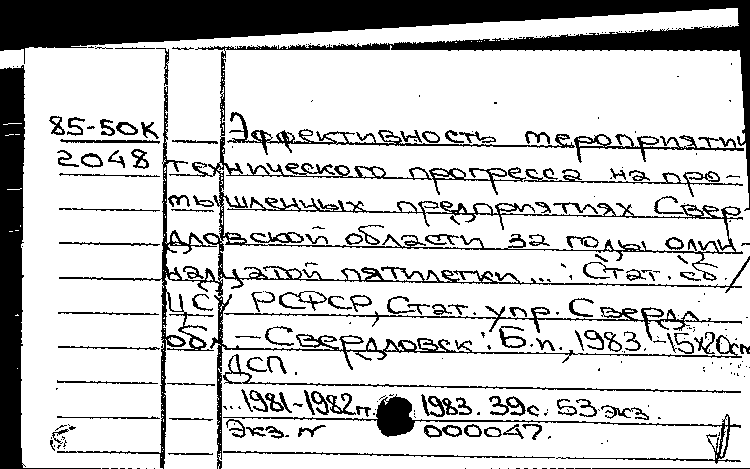 85-50К Эффективность мероприятий
2048 технического прогресса на про-
мышленных предприятиях Свер-
дловской области за годы один-
надцатой пятилетки...: Стат. сб./
ЦСУ РСФСР, Стат. упр. Свердл.
обл. - Свердловск: Б.и., 1983. - 15х20см
ДСП.
...1981-1982гг. 1983. 39с. 53 экз.
Экз. N 000047.